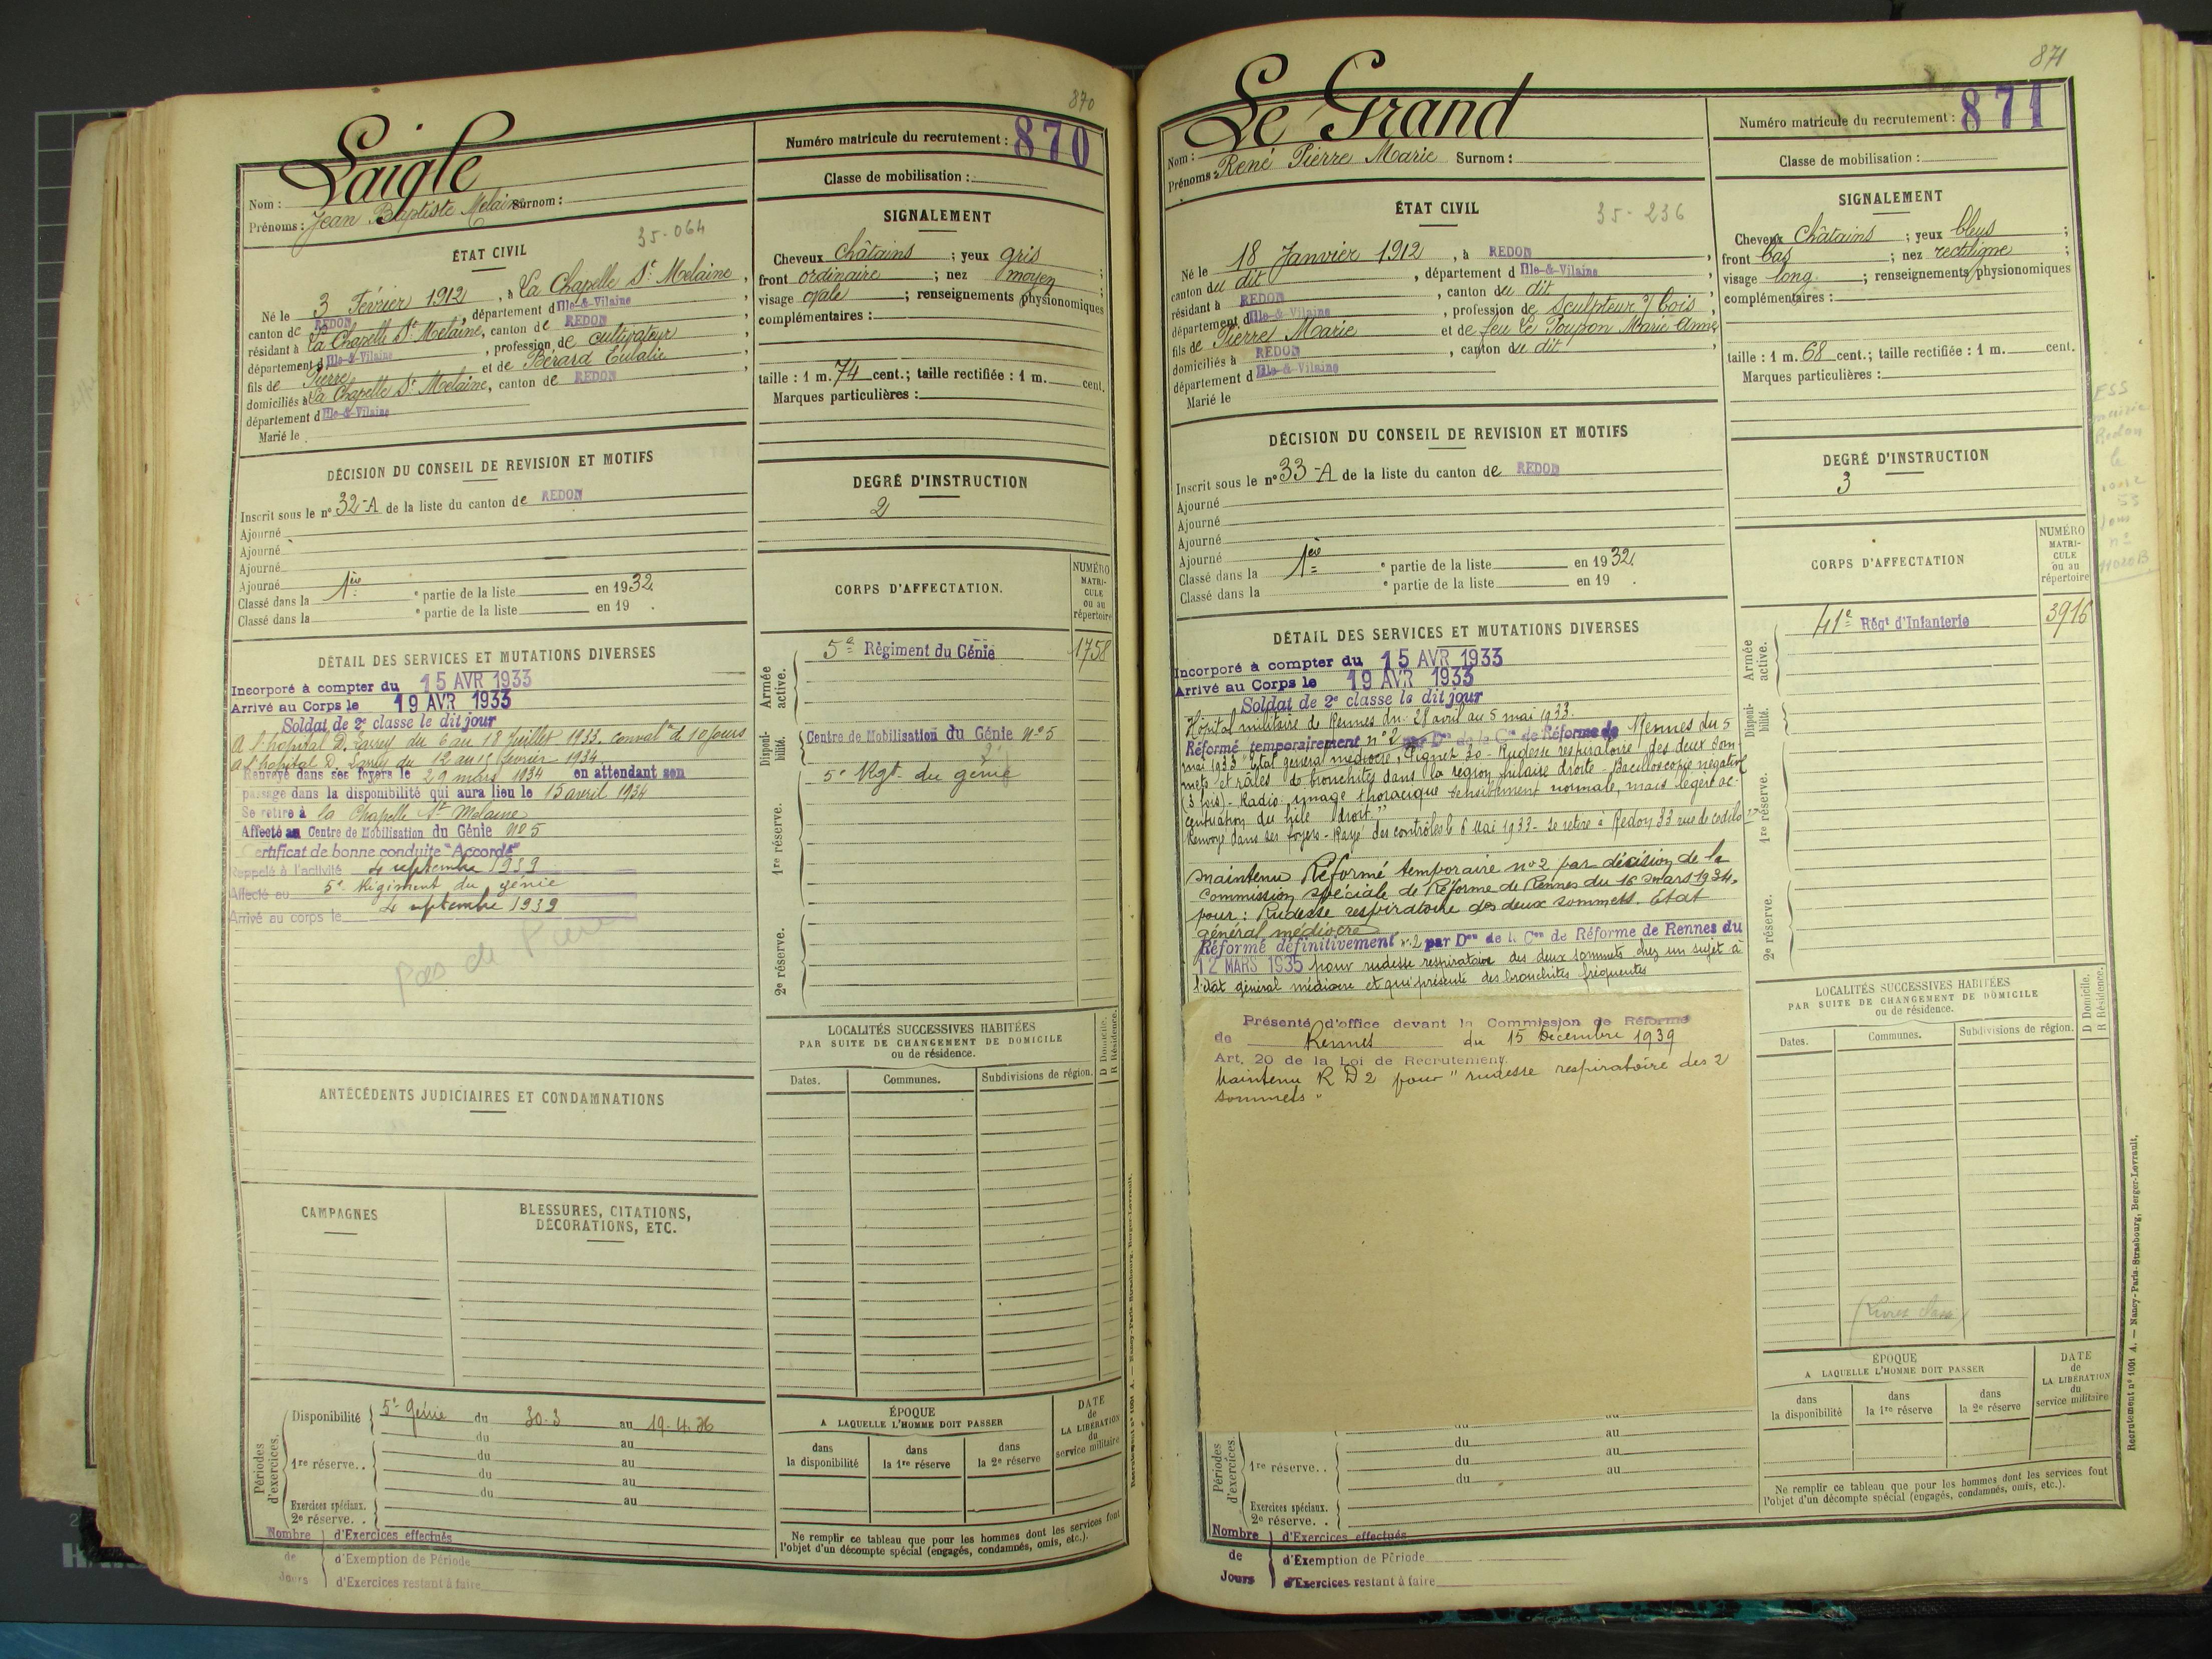 870
Laigle
Nom :
Prénoms : Jean Baptiste Melaine Surnom :
Numéro matricule du recrutement : 870
Classe de mobilisation :
35-064
ÉTAT CIVIL
Né le 3 Février 1912, à La Chapelle St Melaine,
canton de REDON, département d Ille-&-Vilaine,
résidant à La Chapelle St Melaine, canton de REDON
département d Ille-&-Vilaine, profession de cultivateur,
fils de Pierre et de Bérard Eulalie,
domiciliés à La Chapelle St Melaine, canton de REDON,
département d Ille-&-Vilaine
Marié le
SIGNALEMENT
Cheveux châtains ; yeux gris ;
front ordinaire ; nez moyen ;
visage ovale ; renseignements physionomiques
complémentaires :
taille : 1 m. 74 cent. ; taille rectifiée : 1 m. cent.
Marques particulières :
DÉCISION DU CONSEIL DE REVISION ET MOTIFS
Inscrit sous le n° 32-A de la liste du canton de REDON
Ajourné
Ajourné
Ajourné
Ajourné
Classé dans la 1ère e partie de la liste en 1932.
Classé dans la e partie de la liste en 19 .
DEGRÉ D'INSTRUCTION
2
CORPS D'AFFECTATION.
NUMÉRO
MATRI-
CULE
ou au
répertoire
Armée active.
5e Régiment du Génie 1758
Disponibilité.
Centre de Mobilisation du Génie N° 5
5e Rgt. du génie
1re réserve.
2e réserve.
DÉTAIL DES SERVICES ET MUTATIONS DIVERSES
Incorporé à compter du 15 AVR 1933
Arrivé au Corps le 19 AVR 1933
Soldat de 2e classe le dit jour
A l'hopital D. Larrey du 6 au 18 Juillet 1933. conval on d 10 jours
A l'hopital D. Larrey du 12 au 15 février 1934
Renvoyé dans ses foyers le 29 mars 1934 en attendant son
passage dans la disponibilité qui aura lieu le 15 avril 1934
Se retire à la Chapelle St Melaine
Affecté au Centre de Mobilisation du Génie N° 5
Certificat de bonne conduite "Accordé"
Rappelé à l'activité 4 septembre 1939
Affecté au 5e Régiment du génie
Arrivé au corps le 4 septembre 1939
Pas de
ANTÉCÉDENTS JUDICIAIRES ET CONDAMNATIONS
CAMPAGNES
BLESSURES, CITATIONS,
DÉCORATIONS, ETC.
LOCALITÉS SUCCESSIVES HABITÉES
PAR SUITE DE CHANGEMENT DE DOMICILE
ou de résidence.
Dates. Communes. Subdivisions de région.
D Domicile.
R Résidence.
Périodes d'exercices.
Disponibilité 5e Génie du 30-3 au 19.4.36
du au
1re réserve. . du au
du au
du au
Exercices spéciaux.
2e réserve. .
Nombre de Jours
d'Exercices effectués
d'Exemption de Période
d'Exercices restant à faire
ÉPOQUE
A LAQUELLE L'HOMME DOIT PASSER
dans la disponibilité
dans la 1re réserve
dans la 2e réserve
DATE
de
LA LIBÉRATION
du
service militaire
Ne remplir ce tableau que pour les hommes dont les services font
l'objet d'un décompte spécial (engagés, condamnés, omis, etc.).
871
Le Grand
Nom :
Prénoms : René Pierre Marie Surnom :
Numéro matricule du recrutement : 871
Classe de mobilisation :
35-236
ÉTAT CIVIL
Né le 18 Janvier 1912, à REDON,
canton du dit, département d Ille-&-Vilaine
résidant à REDON, canton du dit,
département d Ille-&-Vilaine, profession de Sculpteur s/ bois,
fils de Pierre Marie et de feu Le Poupon Marie Anne,
domiciliés à REDON, canton du dit,
département d Ille-&-Vilaine
Marié le
SIGNALEMENT
Cheveux Châtains ; yeux bleus ;
front bas ; nez rectiligne ;
visage long ; renseignements physionomiques
complémentaires :
taille : 1 m. 68 cent. ; taille rectifiée : 1 m. cent.
Marques particulières :
DÉCISION DU CONSEIL DE REVISION ET MOTIFS
Inscrit sous le n° 33-A de la liste du canton de REDON
Ajourné
Ajourné
Ajourné
Ajourné
Classé dans la 1ère e partie de la liste en 1932.
Classé dans la e partie de la liste en 19 .
DEGRÉ D'INSTRUCTION
3
CORPS D'AFFECTATION
NUMÉRO
MATRI-
CULE
ou au
répertoire
Armée active.
41e Régt d'Infanterie 3916
Disponibilité.
1re réserve.
2e réserve.
DÉTAIL DES SERVICES ET MUTATIONS DIVERSES
Incorporé à compter du 15 AVR 1933
Arrivé au Corps le 19 AVR 1933
Soldat de 2e classe le dit jour
Hôpital militaire de Rennes du 28 avril au 5 mai 1933.
Réformé temporairement n° 2 par Don de la Con de Réforme de Rennes du 5
mai 1933 "Etat général médiocre, Pignet 30 - Rudesse respiratoire des deux som-
mets et râles de bronchites dans la région hilaire droite - Bacilloscopie négative
(3 fois) - Radio : image thoracique sensiblement normale, mais légère ac-
centuation du hile droit."
Renvoyé dans ses foyers - Rayé des contrôles le 6 Mai 1933 - Se retire à Redon 33 rue de
maintenu Réformé temporaire n° 2 par décision de la
Commission spéciale de Réforme de Rennes du 16 mars 1934.
pour : Rudesse respiratoire des deux sommets. Etat
général médiocre
Réformé définitivement n° 2 par Don de la Con de Réforme de Rennes du
12 MARS 1935 pour rudesse respiratoire des deux sommets chez un sujet à
l'état général médiocre et qui présente des bronchites fréquentes
Présenté d'office devant la Commission de Réforme
de Rennes du 15 Décembre 1939
Art. 20 de la Loi de Recrutement.
Maintenu R D 2 pour "rudesse respiratoire des 2
sommets"
LOCALITÉS SUCCESSIVES HABITÉES
PAR SUITE DE CHANGEMENT DE DOMICILE
ou de résidence.
Dates. Communes. Subdivisions de région.
D Domicile.
R Résidence.
Périodes d'exercices.
du au
1re réserve. . du au
du au
Exercices spéciaux.
2e réserve. .
Nombre de Jours
d'Exercices effectués
d'Exemption de Période
d'Exercices restant à faire
ÉPOQUE
A LAQUELLE L'HOMME DOIT PASSER
dans la disponibilité
dans la 1re réserve
dans la 2e réserve
DATE
de
LA LIBÉRATION
du
service militaire
Ne remplir ce tableau que pour les hommes dont les services font
l'objet d'un décompte spécial (engagés, condamnés, omis, etc.).
Recrutement n° 1001 A. — Nancy-Paris-Strasbourg, Berger-Levrault.